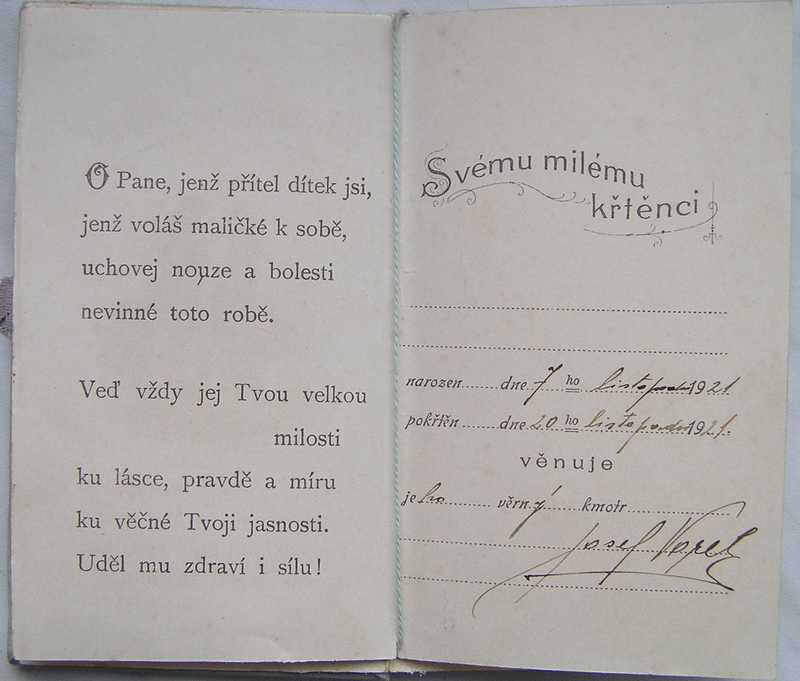 O Pane, jenž přítel dítek jsi,
jenž voláš maličké k sobě,
uchovej nouze a bolesti
nevinné toto robě.
Veď vždy jej Tvou velkou
milosti
ku lásce, pravdě a míru
ku věčné Tvoji jasnosti.
Uděl mu zdraví i sílu!
Svému milému
křtěnci
narozen dne 7 ho listopadu 1921
pokřtěn dne 20 ho listopadu 1921.
věnuje
jeho věrný kmotr
Josef